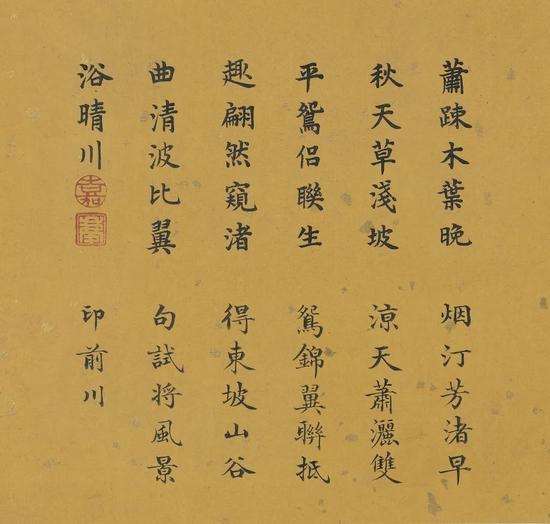 蕭疎木葉晚
秋天草淺坡
平鴛侶聯生
趣翩然窺渚
曲清波比翼
浴晴川
烟汀芳渚早
涼天蕭灑雙
鴛錦翼聯抵
得東坡山谷
句試將風景
印前川